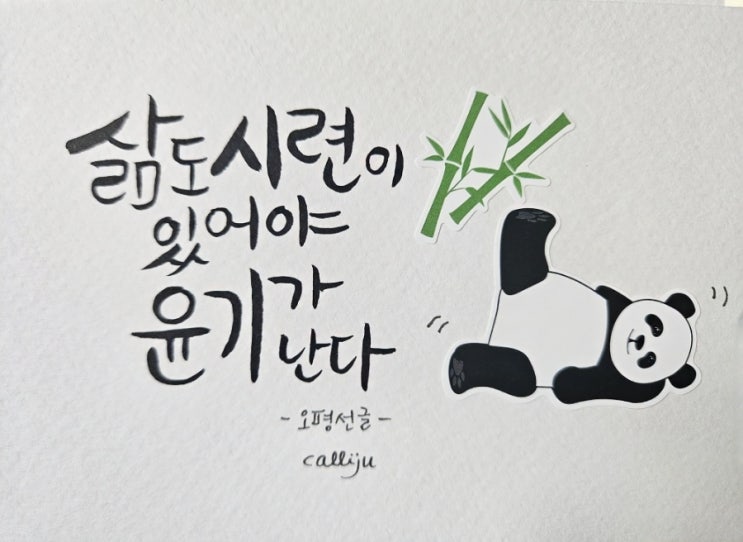 삶도 시련이
있어야
윤기가
난다
- 오평선글 -
calliju